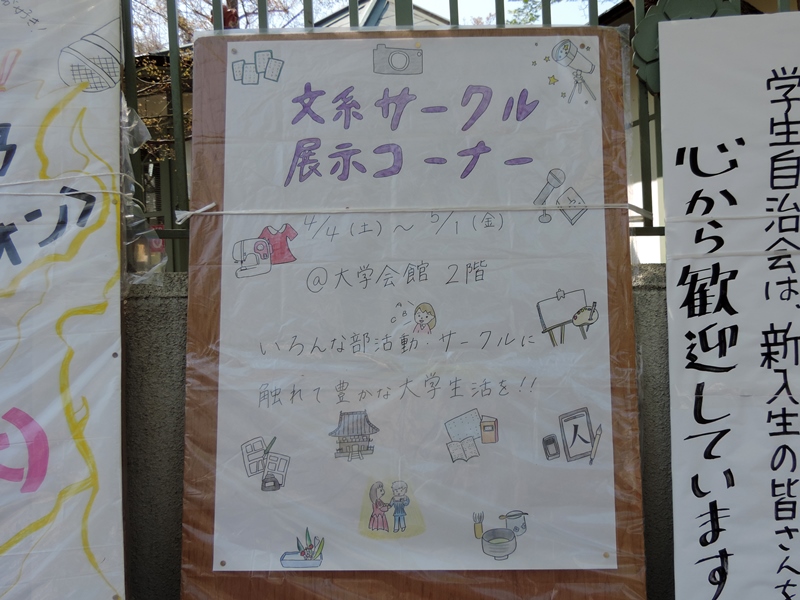 文系サークル
展示コーナー
4/4(土)～5/1(金)
@大学会館 2階
いろんな部活動・サークルに
触れて豊かな大学生活を!!
人
学生自治会は、新入生の皆さんを
心から歓迎しています